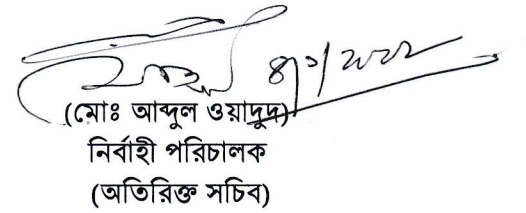 (মোঃ আব্দুল ওয়াদুদ)
নির্বাহী পরিচালক
(অতিরিক্ত সচিব)